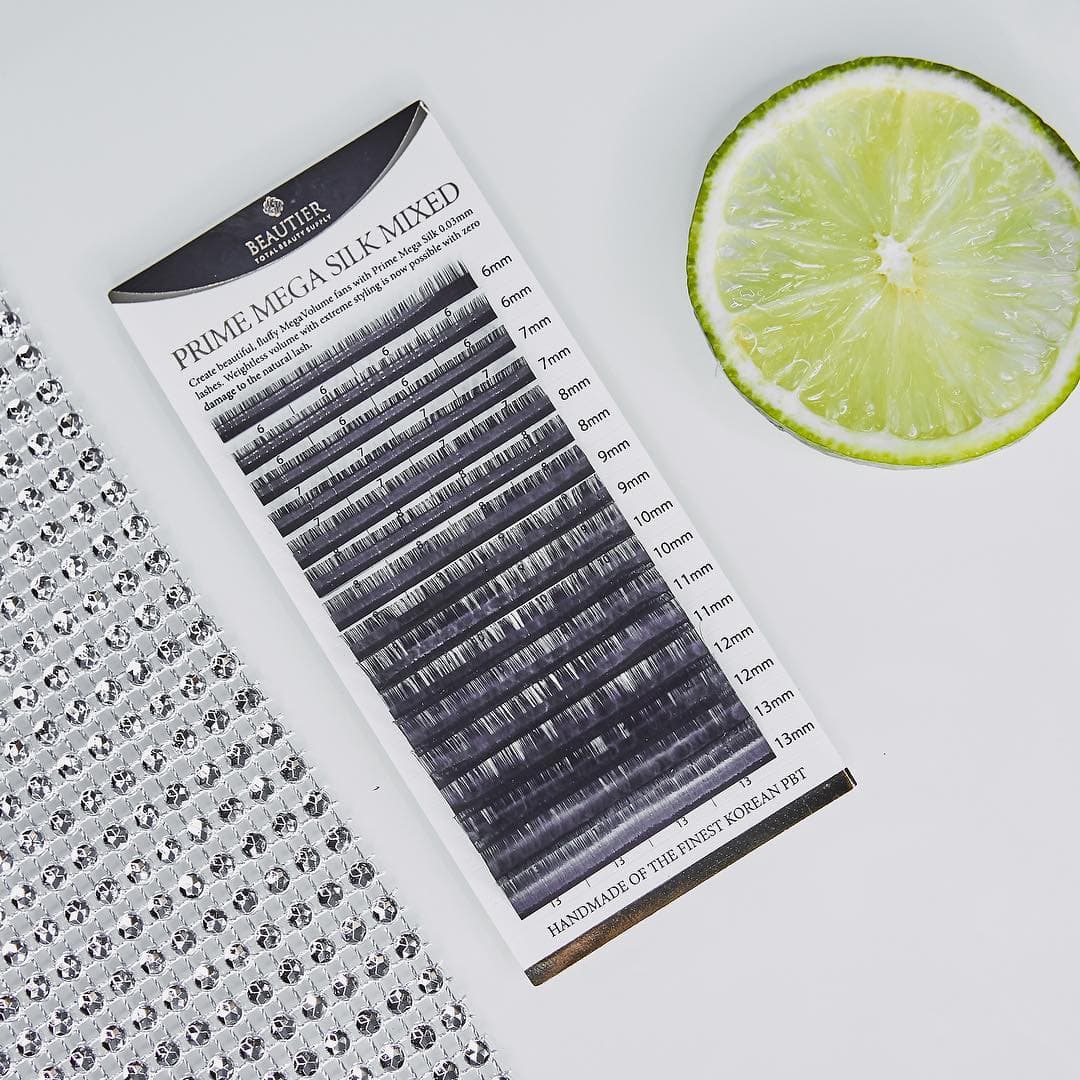 BEAUTIER
TOTAL BEAUTY SUPPLY
PRIME MEGA SILK MIXED
Create beautiful, fluffy MegaVolume fans with Prime Mega Silk 0.03mm
lashes. Weightless volume with extreme styling is now possible with zero
damage to the natural lash.
6mm
6mm
7mm
7mm
8mm
8mm
9mm
9mm
10mm
10mm
11mm
11mm
12mm
12mm
13mm
13mm
13 13 13 13
HANDMADE OF THE FINEST KOREAN PBT